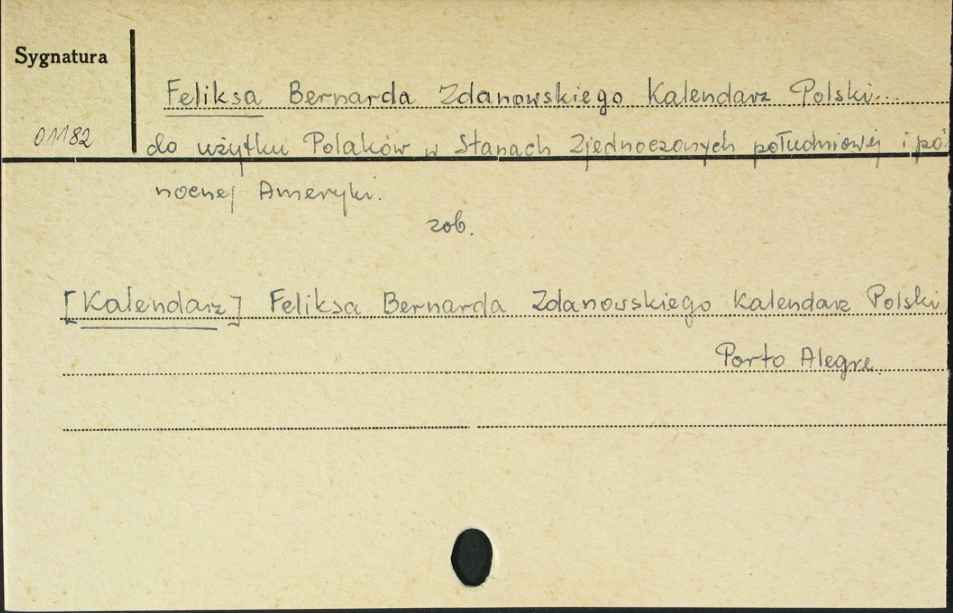 Sygnatura
Feliksa Bernarda Zdanowskiego Kalendarz Polski...
01182
do użytku Polaków w Stanach Zjednoczonych południowej i pó
nocnej Ameryki.
zob.
[Kalendarz] Feliksa Bernarda Zdanowskiego Kalendarz Polski
Porto Alegre